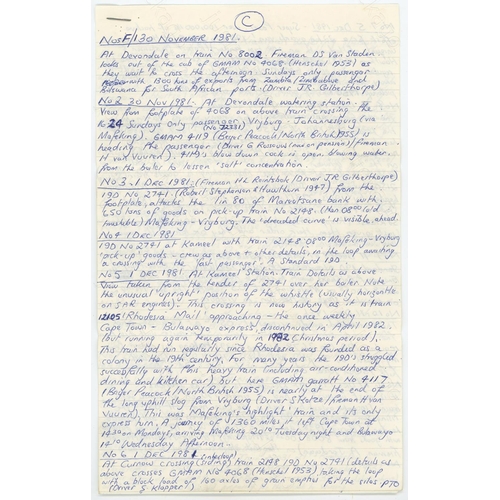 C
Nos F/1 30 NOVEMBER 1981.
At Devondale on train No 8002 Fireman DS Van Staden
looks out of the cab of GMAM No 4068 (Henschel 1953) as
they wait to cross the afternoon Sundays only passenger
with 1300 tons of exports from Zambia Zimbabwe and
Botswana for South African ports. (Driver J.R. Gilberthorpe)
No 2 30 Nov 1981. At Devondale watering station.
View from footplate of 4068 on above train crossing the
to 24 Sundays Only passenger, Vryburg - Johannesburg (via
Mafeking). (No 72231) GMAM 4119 (Beyer Peacock/North British 1955) is
heading the passenger (Driver G Rossouw (now on pension)/Fireman
H van Vuuren). 4119's blow down cock is open blowing water
from the boiler to lessen 'salt' concentration.
No 3. 1 DEC 1981. (Fireman HL /Driver J.R. Gilberthorpe)
19D No 2741 (Robert Stephenson & Hawthorn 1947) from the
footplate, attacks the 1 in 80 of Maretsane bank with
650 tons of goods on pick-up train No 2148. (then 0800 (old
timetable) Mafeking - Vryburg. The 'dreaded curve' is visible ahead.
No 4 1 DEC 1981
19D No 2741 at Kameel with train 2148 0800 Mafeking - Vryburg
'pick-up' goods - crew as above + other details, in the loop awaiting
a crossing with the 'fast passenger'. A Standard 19D
No 5 1 DEC 1981 At Kameel Station. Train Details as above
View taken from the tender of 2741 over her boiler. Note
the unusual 'upright' position of the whistle (usually horizontal
on SAR engines). This crossing is now history as it is train
12105 (Rhodesia Mail) approaching - the once weekly
Cape Town - Bulawayo express, discontinued in April 1982.
(but running again temporarily in 1982 (Christmas period).
This train had run regularly since Rhodesia was founded as a
colony in the 19th century. For many years the 19D's struggled
successfully with this heavy train (including air-conditioned
dining and kitchen car) but here GMAM garratt No 4117
(Beyer Peacock/North British 1955) is nearly at the end of
the long uphill slog from Vryburg (Driver S Kotze/fireman H van
Vuuren). This was Mafeking's 'highlight' train and its only
express turn. A journey of ±1360 miles it left Cape Town at
1430 on Mondays, arriving Mafeking 2010 Tuesday night and Bulawayo
1410 Wednesday Afternoon.
No 6 1 DEC 1981
At Curnow crossing (siding) train 2148 19D No 2741 (details as
above crosses GMAM No 4068 (Henschel 1953) taking the loop
with a block load of 160 axles of grain empties for the silos PTO
(Driver S Klopper)